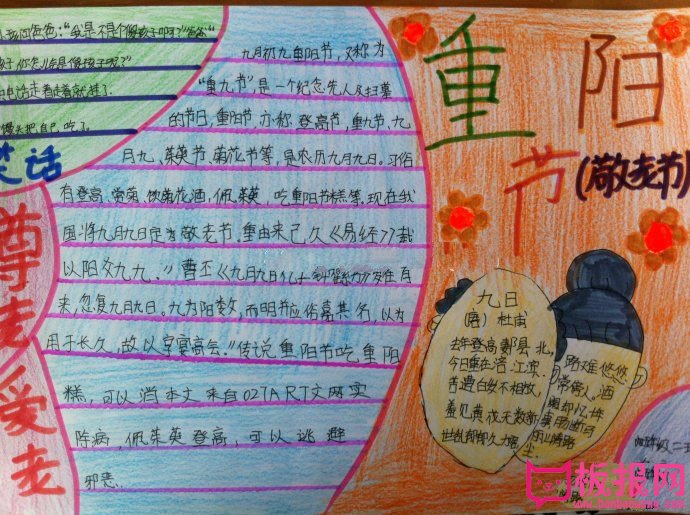 重阳节(敬老节)
小孩问爸爸:"我是不是个傻孩子啊?"爸爸"
孩子你怎么会是傻孩子呢?"
笑话
尊老爱老
九月初九重阳节,又称为
"重九节",是一个纪念先人及扫墓
的节日,重阳节,亦称登高节,重九节、九
月九、茱萸节、菊花节等,是农历九月九日。习俗
有登高、赏菊、饮菊花酒、佩茱萸、吃重阳节糕等,现在我
国将九月九日定为敬老节,重由来已久《易经》载
以阳爻九九。"曹丕《九月九日
来,忽复九月九日。九为阳数,而
用于长久,故以享宴高会。"传说重阳节吃重阳
糕,可以消本文来自027ART文网实
陈病,佩茱萸登高,可以逃避
邪恶.
九日
(唐)杜甫
去年登高郪县北,
今日重在涪江滨。
苦遭白发不相放,
羞见黄花无数新
世乱郁郁久为客,
路难悠悠
常傍人。酒
阑却忆十
板报网